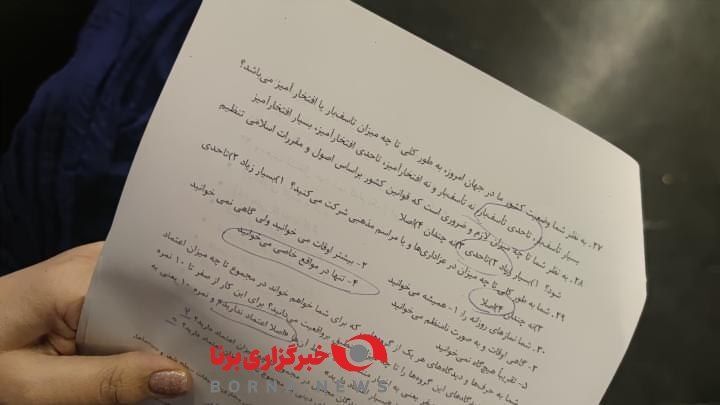 ۲۷. به نظر شما وضعیت کشور ما در جهان امروز، به طور کلی تا چه میزان تاسف‌بار یا افتخار آمیز می‌باشد؟
بسیار تأسف‌بار، تاحدی تأسف‌بار، نه تأسف‌بار و نه افتخارآمیز، تاحدی افتخارآمیز، بسیار افتخارآمیز
۲۸. به نظر شما تا چه میزان لازم و ضروری است که قوانین کشور براساس اصول و مقررات اسلامی تنظیم
شود؟ ۱)بسیار زیاد ۲)تاحدی ۳)نه چندان ۴)اصلا
۲۹. شما به طور کلی تا چه میزان در عزاداری‌ها و یا مراسم مذهبی شرکت می‌کنید؟ ۱)بسیار زیاد ۲)تاحدی
۳)نه چندان ۴)اصلا
۳۰. شما نمازهای روزانه را ۱- همیشه می‌خوانید ۲- بیشتر اوقات می خوانید ولی گاهی نمی خوانید
۳- گاهی اوقات و به صورت نامنظم می‌خوانید ۴- تنها در مواقع خاصی می‌خوانید
۵- تقریباً هیچ‌گاه نمی‌خوانید
شما به حرف‌ها و دیدگاه‌های هر یک از که برای شما خواهم خواند در مجموع تا چه میزان اعتماد
دیدگاه‌های این گروه‌ها را تا چه واقعیت می‌دانید؟ برای این کار از صفر تا ۱۰ نمره
اصلا اعتماد ندارید و نمره ۱۰ یعنی به
اعتماد دارید؟ ۷
خبرگزاری برنا
BORNA NEWS